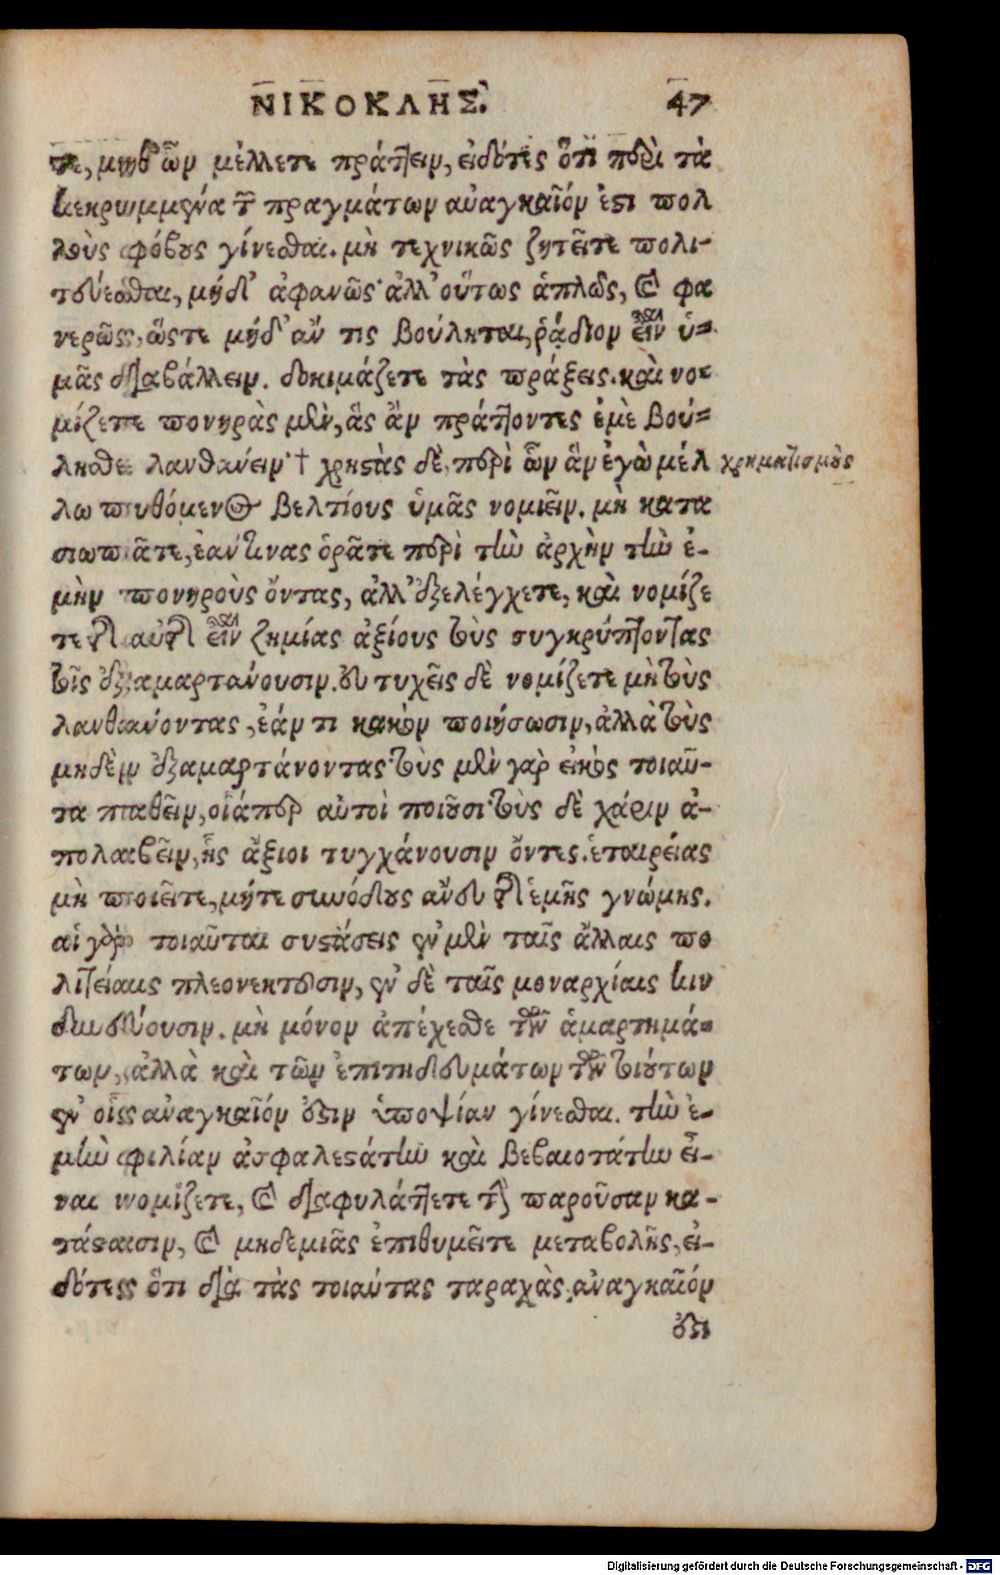 ΝΙΚΟΚΛΗΣ. 47
τε, μηδ' ὧν μέλλετε πράττειν, εἰδότες ὅτι περὶ τὰ
κεκρυμμένα τῶν πραγμάτων ἀναγκαῖόν ἐστι πολ
λοὺς φόβους γίνεσθαι. μὴ τεχνικῶς ζητεῖτε πολι-
τεύεσθαι, μήδ' ἀφανῶς· ἀλλ' οὕτως ἁπλῶς, καὶ φα
νερῶς, ὥστε μήδ' ἄν τις βούληται, ῥᾴδιον εἶναι ὑ-
μᾶς διαβάλλειν. δοκιμάζετε τὰς πράξεις. καὶ νο-
μίζετε πονηρὰς μὲν, ἃς ἂν πράττοντες ἐμὲ βού-
λησθε λανθάνειν· † χρηστὰς δὲ, περὶ ὧν ἂν ἐγὼ μέλ
χρηματισμοὺς
λω πυθόμενος βελτίους ὑμᾶς νομιεῖν. μὴ κατα
σιωπᾶτε, ἐάν τινας ὁρᾶτε περὶ τὴν ἀρχὴν τὴν ἐ-
μὴν πονηροὺς ὄντας, ἀλλ' ἐξελέγχετε, καὶ νομίζε
τε τῆς αὐτῆς εἶναι ζημίας ἀξίους τοὺς συγκρύπτοντας
τοῖς ἐξαμαρτάνουσιν. εὐτυχεῖς δὲ νομίζετε μὴ τοὺς
λανθάνοντας, ἐάν τι κακὸν ποιήσωσιν, ἀλλὰ τοὺς
μηδὲν ἐξαμαρτάνοντας· τοὺς μὲν γὰρ εἰκὸς τοιαῦ-
τα παθεῖν, οἷάπερ αὐτοὶ ποιοῦσι· τοὺς δὲ χάριν ἀ-
πολαβεῖν, ἧς ἄξιοι τυγχάνουσιν ὄντες. ἑταιρείας
μὴ ποιεῖτε, μήτε συνόδους ἄνευ τῆς ἐμῆς γνώμης.
αἱ γὰρ τοιαῦται συστάσεις ἐν μὲν ταῖς ἄλλαις πο
λιτείαις πλεονεκτοῦσιν, ἐν δὲ ταῖς μοναρχίαις κιν
δυνεύουσιν. μὴ μόνον ἀπέχεσθε τῶν ἁμαρτημά-
των, ἀλλὰ καὶ τῶν ἐπιτηδευμάτων τῶν τοιούτων
ἐν οἷς ἀναγκαῖόν ἐστιν ὑποψίαν γίνεσθαι. τὴν ἐ-
μὴν φιλίαν ἀσφαλεστάτην καὶ βεβαιοτάτην εἶ-
ναι νομίζετε, καὶ διαφυλάττετε τὴν παροῦσαν κα-
τάστασιν, καὶ μηδεμιᾶς ἐπιθυμεῖτε μεταβολῆς, εἰ-
δότες ὅτι διὰ τὰς τοιαύτας ταραχὰς ἀναγκαῖόν
ἐστι
Digitalisierung gefördert durch die Deutsche Forschungsgemeinschaft - DFG